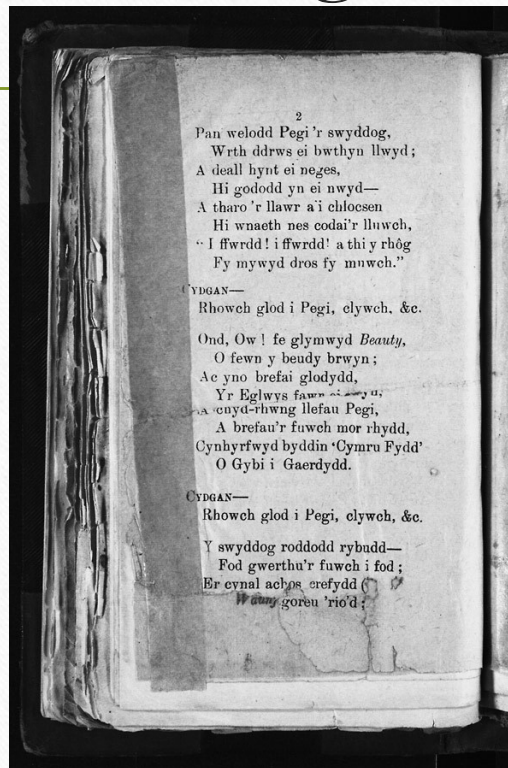 2
Pan welodd Pegi 'r swyddog,
Wrth ddrws ei bwthyn llwyd;
A deall hynt ei neges,
Hi gododd yn ei nwyd—
A tharo 'r llawr a'i chlocsen
Hi wnaeth nes codai'r lluwch,
“I ffwrdd! i ffwrdd! a thi y rhôg
Fy mywyd dros fy muwch.”
CYDGAN—
Rhowch glod i Pegi, clywch, &c.
Ond, Ow! fe glymwyd Beauty,
O fewn y beudy brwyn;
Ac yno brefai glodydd,
Yr Eglwys fawr
rhwng llefau Pegi,
A brefau'r fuwch mor rhydd,
Cynhyrfwyd byddin ‘Cymru Fydd’
O Gybi i Gaerdydd.
CYDGAN—
Rhowch glod i Pegi, clywch, &c.
Y swyddog roddodd rybudd—
Fod gwerthu'r fuwch i fod;
Er cynal achos crefydd
goreu 'rio'd;